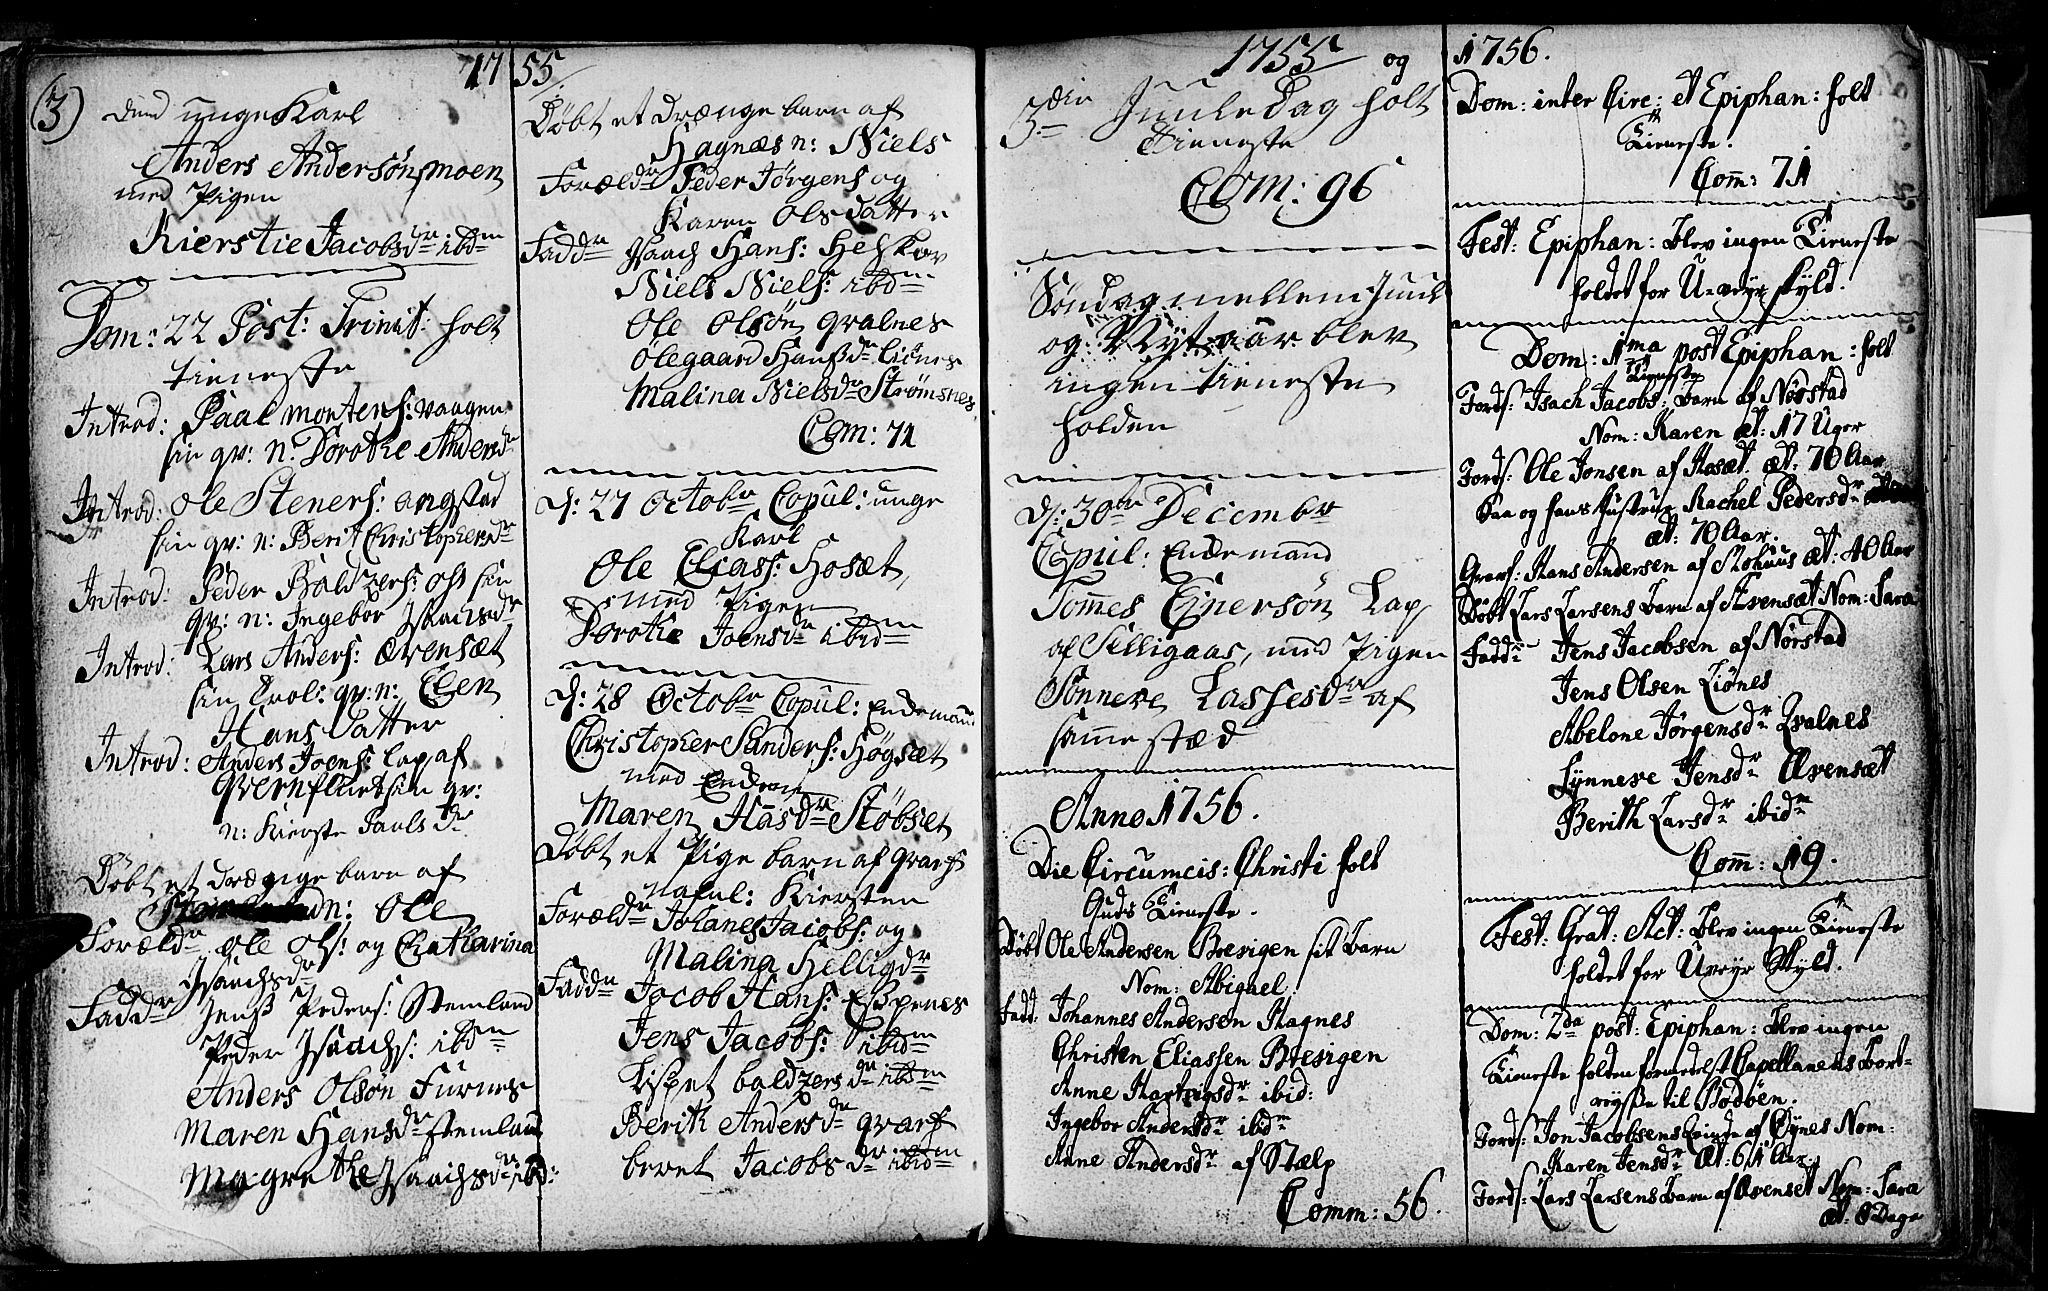 (3)
1755
dend unge Karl
Anders Andersøn moen
med Pigen
Kierstie Jacobsdr ibdm
Dom: 22 Post: Trinit: holt
tieneste
Introd: Paal Mortens: Vaagen
sin qv: n: Dorothe Andersdr
Introd: Ole Steners: angstad
sin qv: n: Berit Christophersdr
Introd: Peder Baldzers: sin
qv: n: Ingebor Isaachsdr
Introd: Lars Anders: Evensæt
sin trol: qv: n: Elen
Hans Datter
Introd: Anders Joens: Lap af
sin qv:
n: Kierste Paulsdr
Døbt et drænge barn af
n: Ole
Forældn Ole Ols: og Chatharina
Isaachsdr
Faddr Jenß Peders: Stemland
Peder Isaachs: ibdm
Anders Olsøn Furnes
Maren Hansdr Stemland
Magrethe Isaachsdr ibd:
Døbt et drænge barn af
Hagnæs n: Niels
Forældr Peder Jørgens og
Karen Olsdatter
Faddr Isaach Hans: Helskov
Niels Niels: ibdm
Ole Olsøn Qvalnes
Ølegaard Hansdr Liønes
Malina Nielsdr Strømsnes
Com: 74
d: 27 Octobr Copul: unge
Karl
Ole Elias: Hosæt,
med Pigen
Dorothe Joensdr ibidm
d: 28 Octobr Copul: Enkemand
Christopher Sanders: Høgsæt
med Enken
Maren Hansdr Støbset
Døbt et Pige barn af Qvarf
nafnl: Kiersten
Forældn Johanes Jacobs: og
Malina Helligdr
Faddn Jocob Hans: Eßpenæs
Jens Jacobs: ibidm
Lispet baldzersdr ibdm
Berith Andersdr Qvarf
beret Jacobsdr ibidm
1755 og
3die Juuledag holt
Tieneste
Com: 96
Søndag mellem Juul
og Nyt aar blev
ingen tieneste
holden
d: 30te Decembr
Copul: Enkemand
Tomes Ejnersøn Lap
af Selligaas, med Pigen
Sønneve Lassesdr af
samme stæd
Anno 1756.
Die Circumcis: Christi holt
Guds Tieneste.
Døbt Ole Andersen Bresigen sit Barn
Nom: Abigael.
Fadd: Johannes Andersen Hagnes
Christen Eliassen Bresigen
Anne Hartvigsdr ibid:
Ingebor Andersdr ibidm
Anne Andersdr af Stælp
Comm: 56.
1756.
Dom: inter Circ: et Epiphan: holt
Tieneste.
Com: 71
Fest: Epiphan: blev ingen Tieneste
holdet for U-veyr skyld.
Dom: 1ma post Epiphan: holt
Tieneste
Jords: Isach Jacobs: barn af Nørstad
Nom: Karen æt: 17 Uger
Jords: Ole Jonsen af Hosæt. æt: 70 Aar
Saa og hans Hustrue Rachel Pedersdr
æt: 70 Aar.
Hans Andersen af æt: 40 Aar
Døbt Lars Larsens barn af Evensæt Nom: Sara
Faddr Jens Jacobsen af Nørstad
Jens Olsen Liønes
Abelone Jørgensdr Qvalnes
Synneve Jensdr Evensæt
Berith Larsdr ibidm
Com: 19.
Fest: Grat: Act: blev ingen Tieneste
holdet for Uveyr Skyld.
Dom: 2da post: Epiphan: blev ingen
Tieneste holden formedelst Capellanens bort-
reyse til Bodøen.
Jords: Jon Jacobsens Qvinde af Øynes Nom:
Karen Jensdr Æt: 61 Aar.
Jords: Lars Larsens barn af Evenset Nom: Sara
æt: 8 Dage